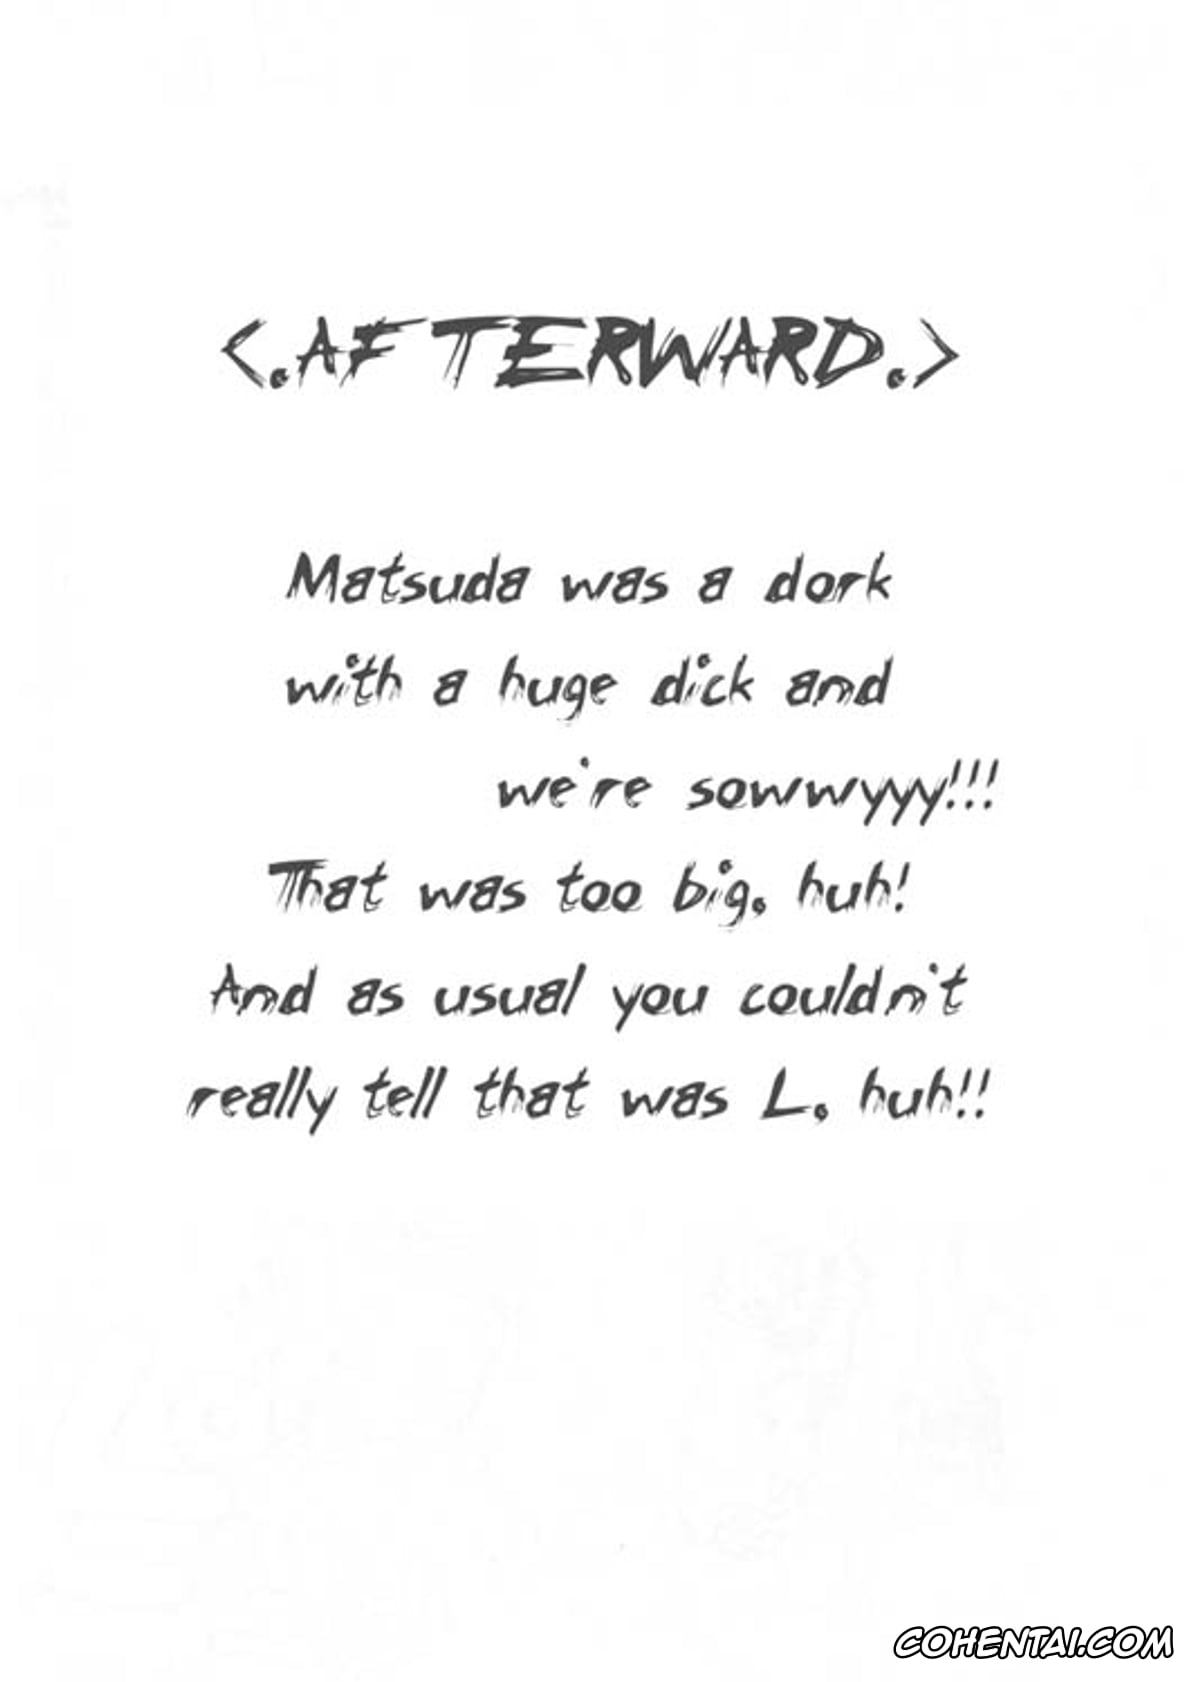 <.AFTERWARD.>
Matsuda was a dork
with a huge dick and
we're sowwyyy!!!
That was too big, huh!
And as usual you couldn't
really tell that was L, huh!!
COHENTAI.COM